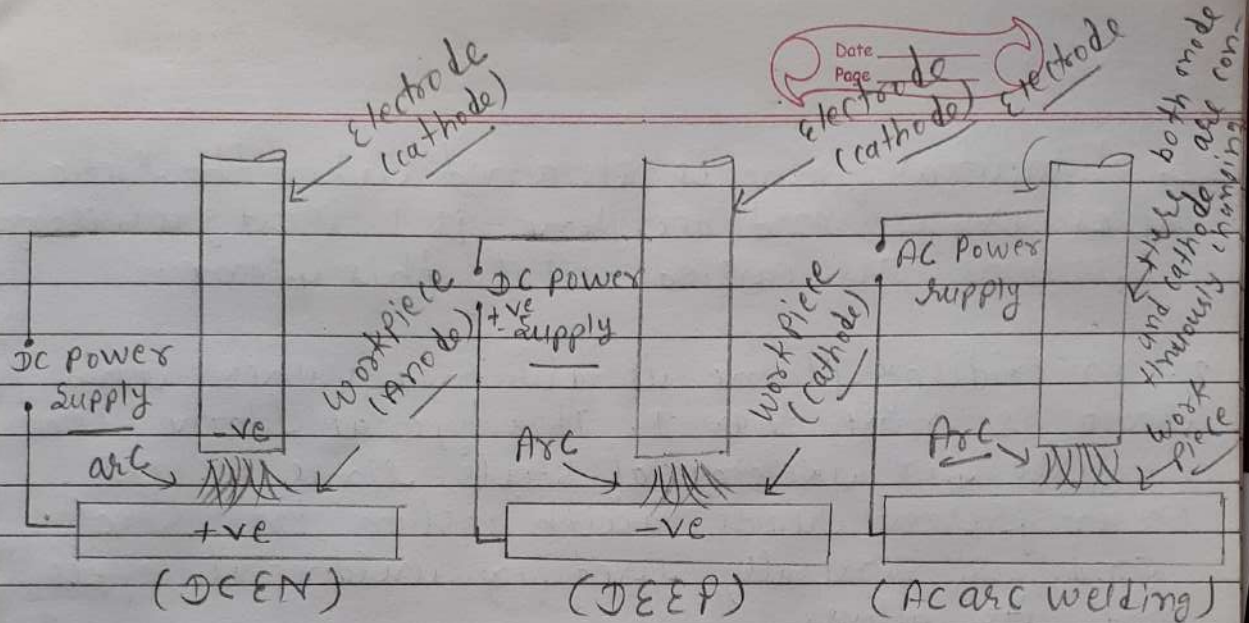 Date
Page
Electrode
(cathode)
DC power
supply
-ve
arc
+ve
Workpiece
(Anode)
(DCEN)
Electrode
(cathode)
DC power
+ve
supply
Arc
-ve
Workpiece
(cathode)
(DEEP)
Electrode
AC Power
supply
Here both anode
and cathode are con-
tinuously changing
Arc
Work
piece
(AC arc welding)